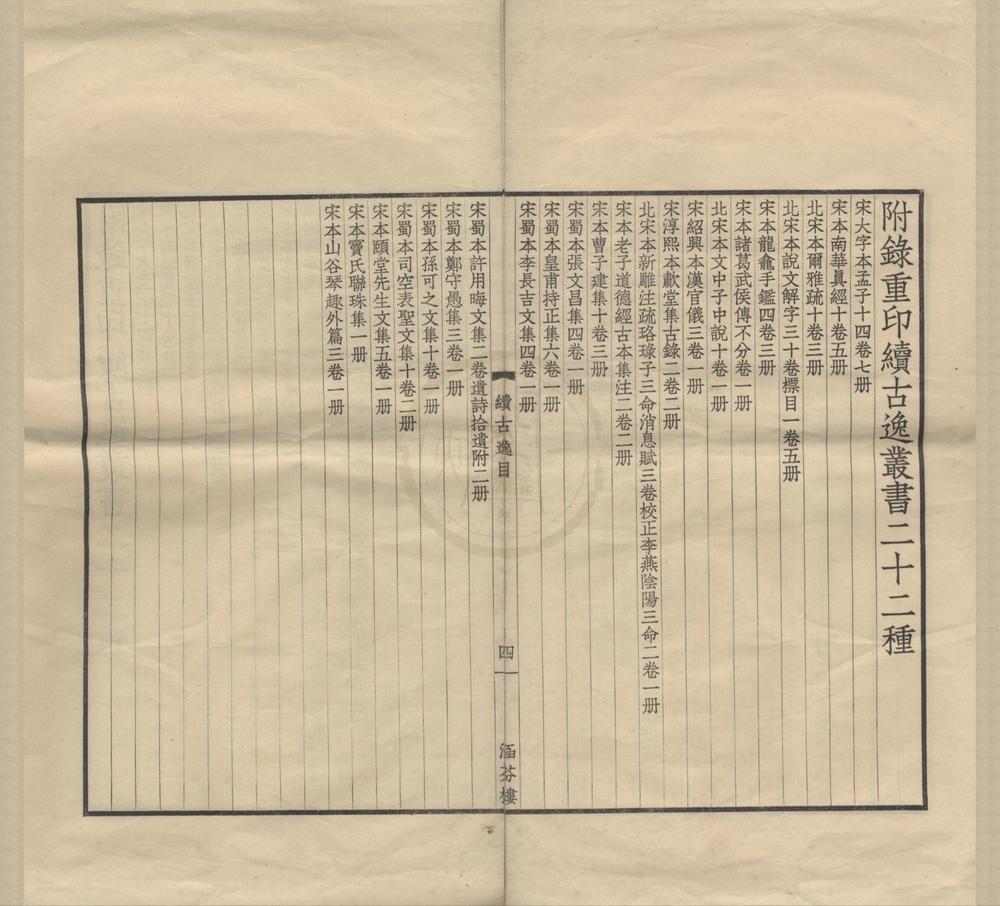 附錄重印續古逸叢書二十二種
宋大字本孟子十四卷七册
宋本南華眞經十卷五册
北宋本爾雅疏十卷三册
北宋本說文解字三十卷標目一卷五册
宋本龍龕手鑑四卷三册
宋本諸葛武侯傳不分卷一册
北宋本文中子中說十卷一册
宋紹興本漢官儀三卷一册
宋淳熙本歗堂集古錄二卷二册
北宋本新雕注疏珞琭子三命消息賦三卷校正李燕陰陽三命二卷一册
宋本老子道德經古本集注二卷二册
宋本曹子建集十卷三册
宋蜀本張文昌集四卷一册
宋蜀本皇甫持正集六卷一册
宋蜀本李長吉文集四卷一册
續古逸目
四
涵芬樓
宋蜀本許用晦文集二卷遺詩拾遺附二册
宋蜀本鄭守愚集三卷一册
宋蜀本孫可之文集十卷一册
宋蜀本司空表聖文集十卷二册
宋本頤堂先生文集五卷一册
宋本竇氏聯珠集一册
宋本山谷琴趣外篇三卷一册